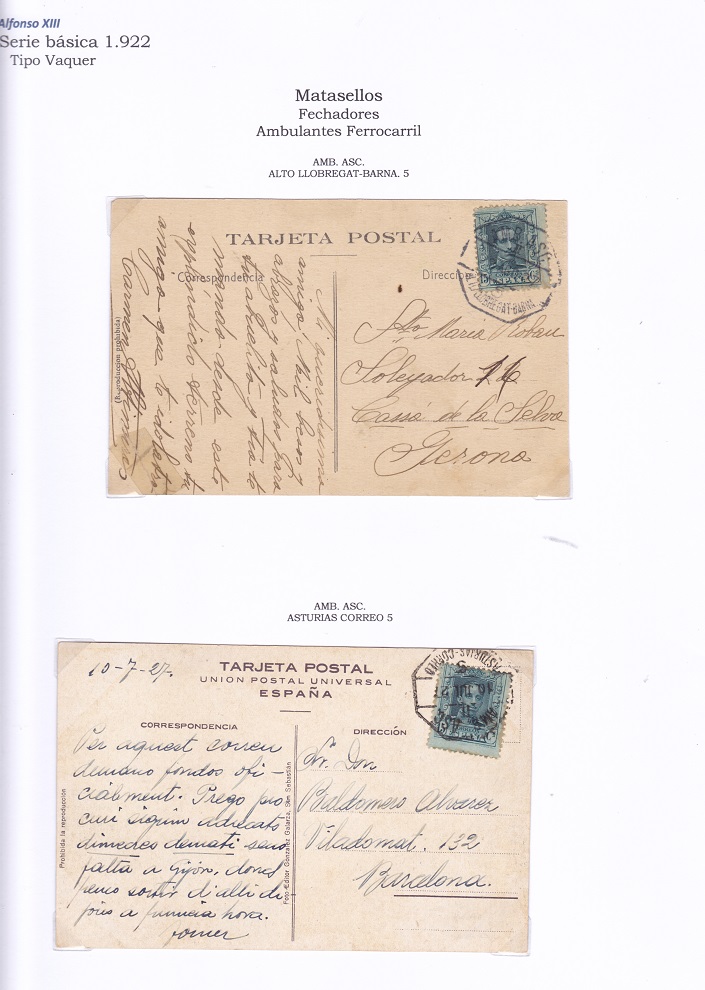 Alfonso XIII
Serie básica 1.922
Tipo Vaquer
Matasellos
Fechadores
Ambulantes Ferrocarril
AMB. ASC.
ALTO LLOBREGAT-BARNA. 5
TARJETA POSTAL
Correspondencia
Dirección
(Reproducción prohibida)
Mi queridisima
amiga Mil besos y
abrazos y saludos para
tu abuelito y tia te
mando desde este
espléndido terreno tu
amiga que te idolatra
Carmen
ASC.
ALTO LLOBREGAT-BARNA
15
Sta Maria
Soleyador 16
Cassá de la Selva
Gerona
AMB. ASC.
ASTURIAS CORREO 5
10-7-27.
TARJETA POSTAL
UNION POSTAL UNIVERSAL
ESPAÑA
CORRESPONDENCIA
DIRECCIÓN
Per aquest correu
demano fondos ofi-
cialment. Prego pro
curi siguin
dimecres demati sens
falta a Gijón, donçs
penso sortir d'alli di
jous a primera hora.
ASTURIAS-CORREO
5
JUL 27
ASC.
Sr. Don
Baldomero Alvarez
Viladomat. 132
Barcelona.
Prohibida la reproducción
Foto-Editor González Galarza, San Sebastián